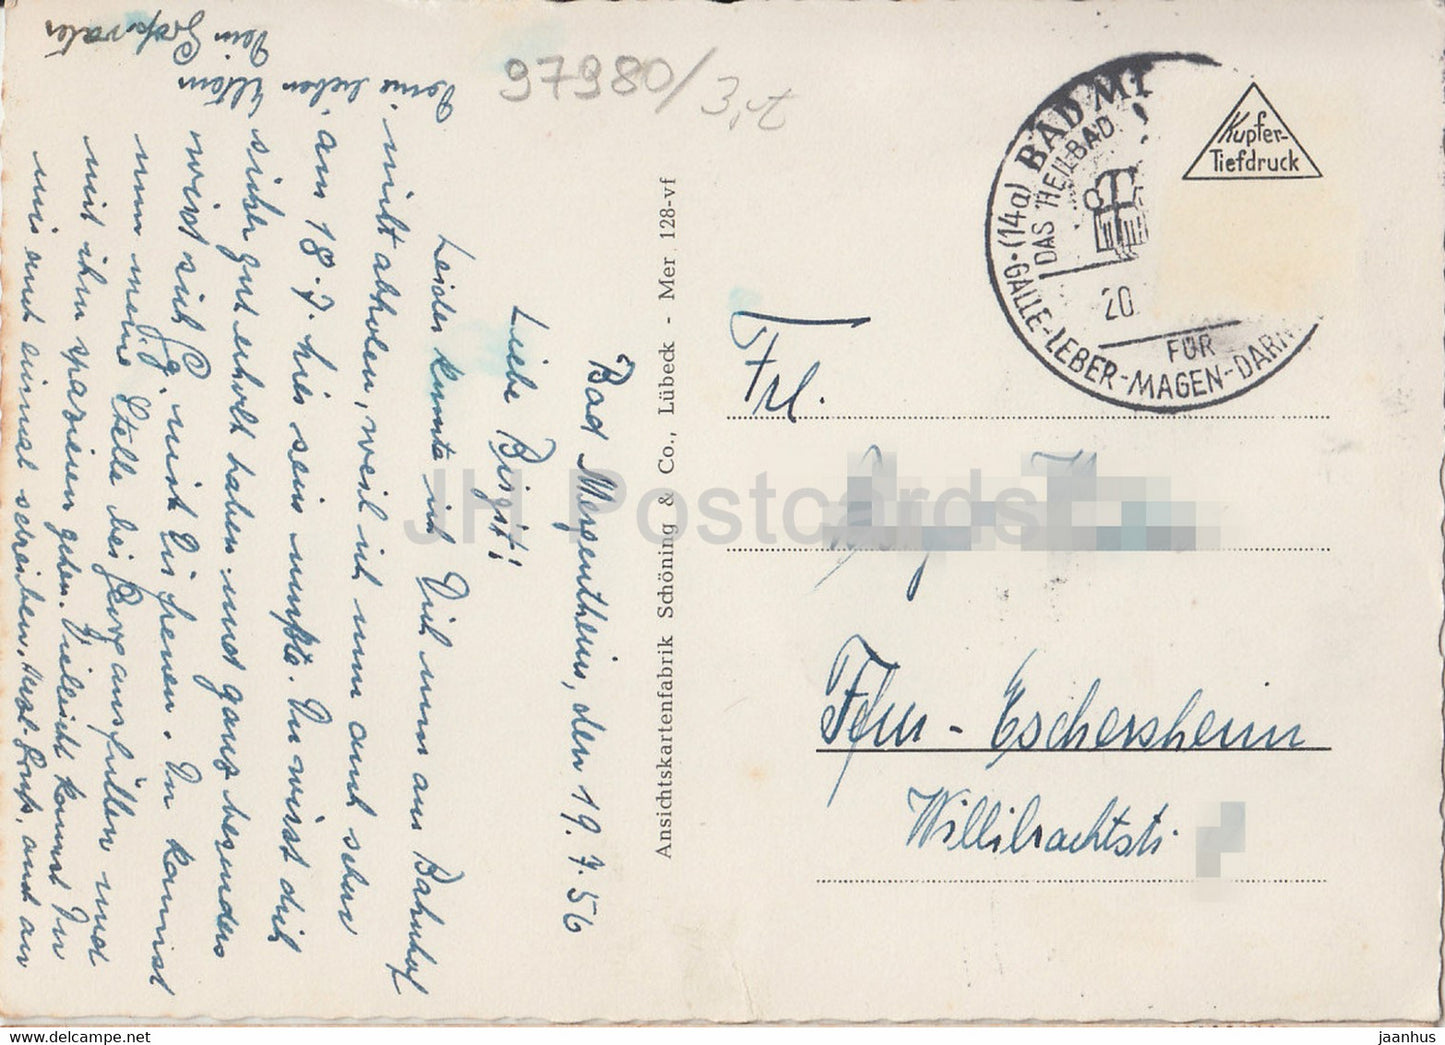 Bad Mergentheim, den 19.7.56
Liebe Birgit!
Leider kunnte ich Dich nun am Bahnhof
nicht abholen, weil ich nun auch schon
am 18.7. hier sein mußte. Du wirst dich
sicher gut erholt haben und ganz besonders
wirst sich G. mit Dir freuen. Du kannst
nun meine Stelle bei Georg ausfüllen und
mit ihm spazieren gehen. Vielleicht kannst Du
mir auch einmal schreiben. Herzl. Gruß, auch an
Deine lieben Eltern
Dein Großvater
97980/
Ansichtskartenfabrik Schöning & Co., Lübeck - Mer 128-vf
(14a) BAD ME
DAS HEILBAD
20.
FÜR
GALLE-LEBER-MAGEN-DARM
Kupfer-
Tiefdruck
Frl.
Ffm - Eschersheim
Willibrachtstr.
JH Postcards
eu.delcampe.net
jaanhus